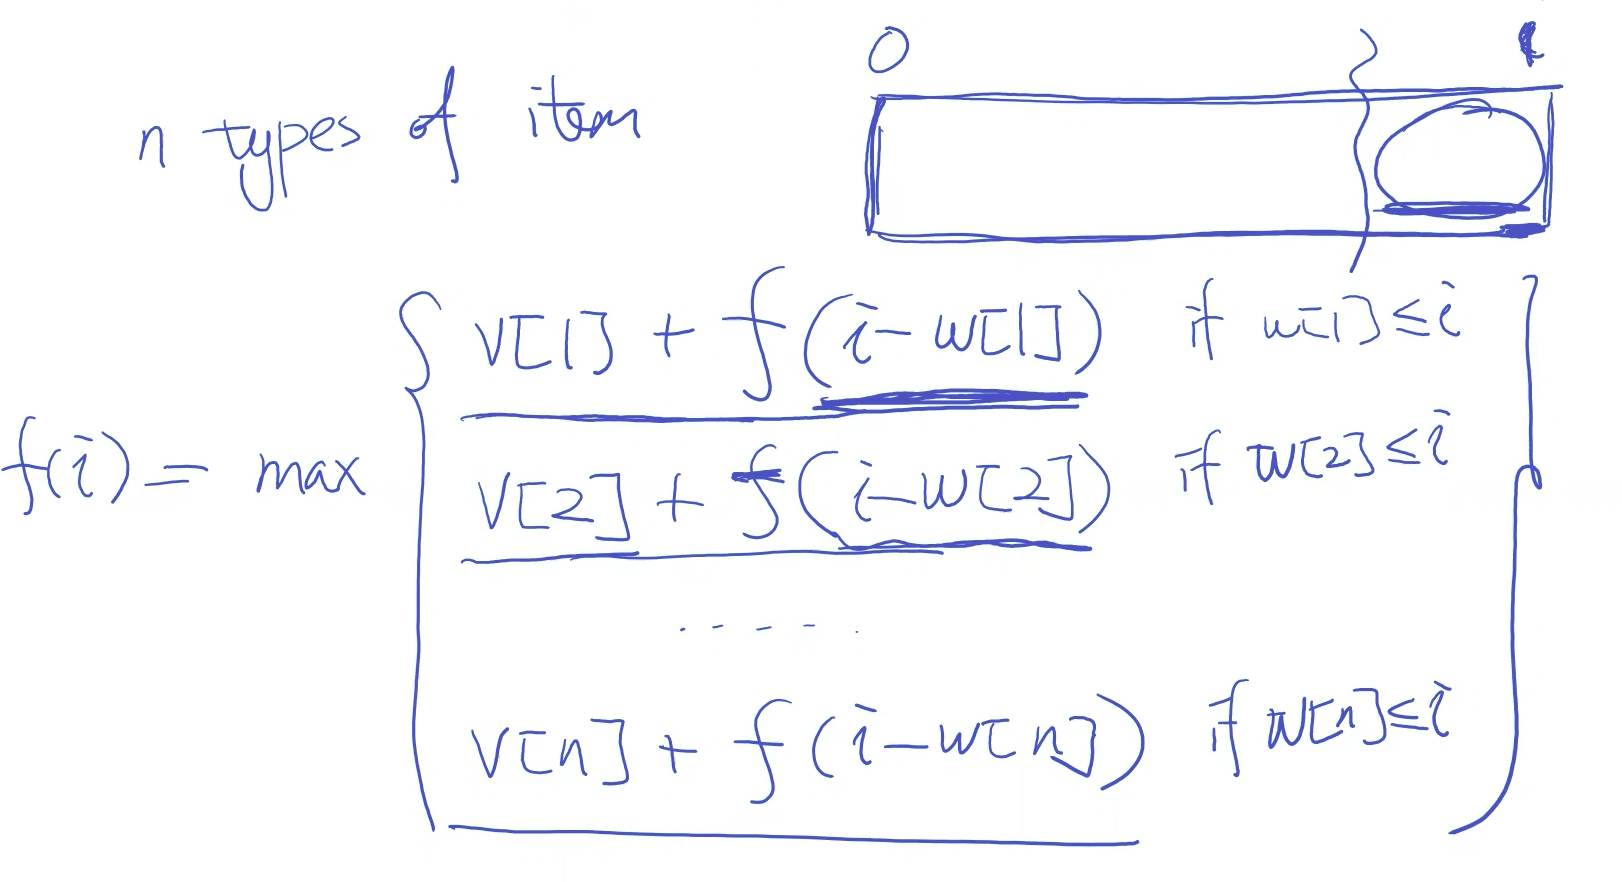 n types of item
0 i
V[1] + f(i-W[1]) if w[1]≤i
f(i) = max
V[2] + f(i-W[2]) if W[2]≤i
. - - - .
V[n] + f(i-W[n]) if W[n]≤i